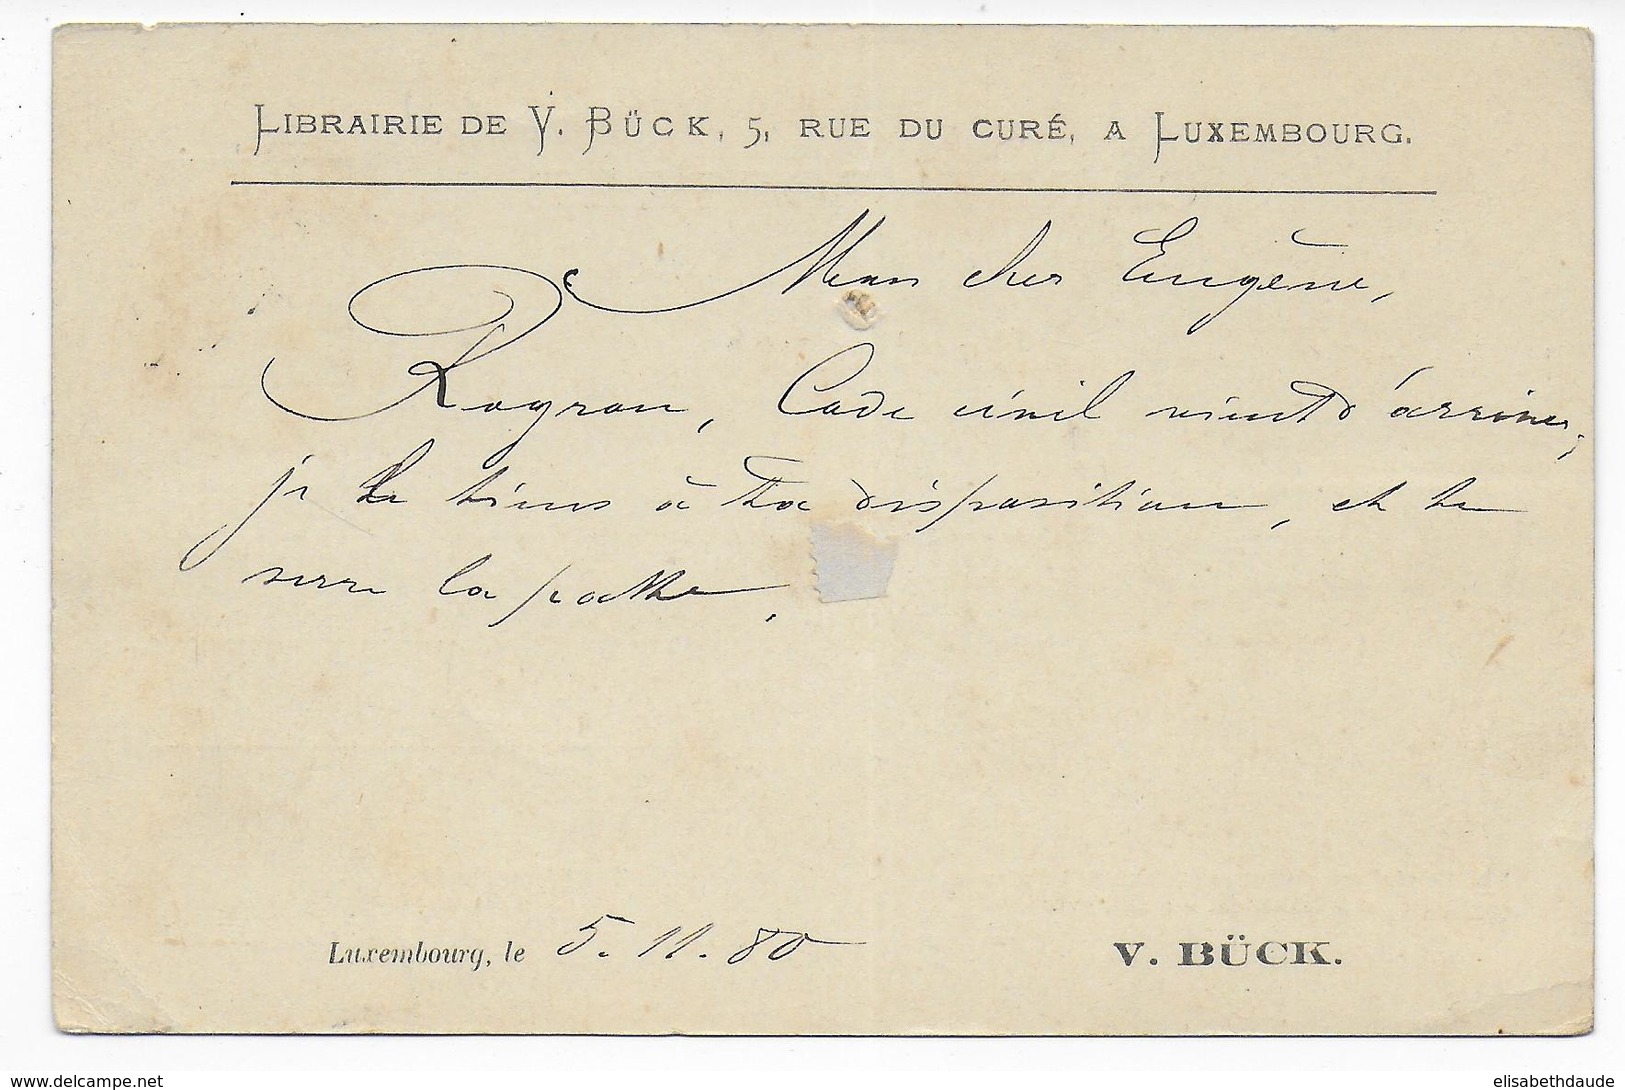 LIBRAIRIE DE V. BÜCK, 5, RUE DU CURÉ, A LUXEMBOURG.
Mon cher Eugène,
Rogron, Code civil vient d'arriver,
je le tiens à ta disposition, et te
serre la patte.
Luxembourg, le 5.11.80
V. BÜCK.
www.delcampe.net
elisabethdaude